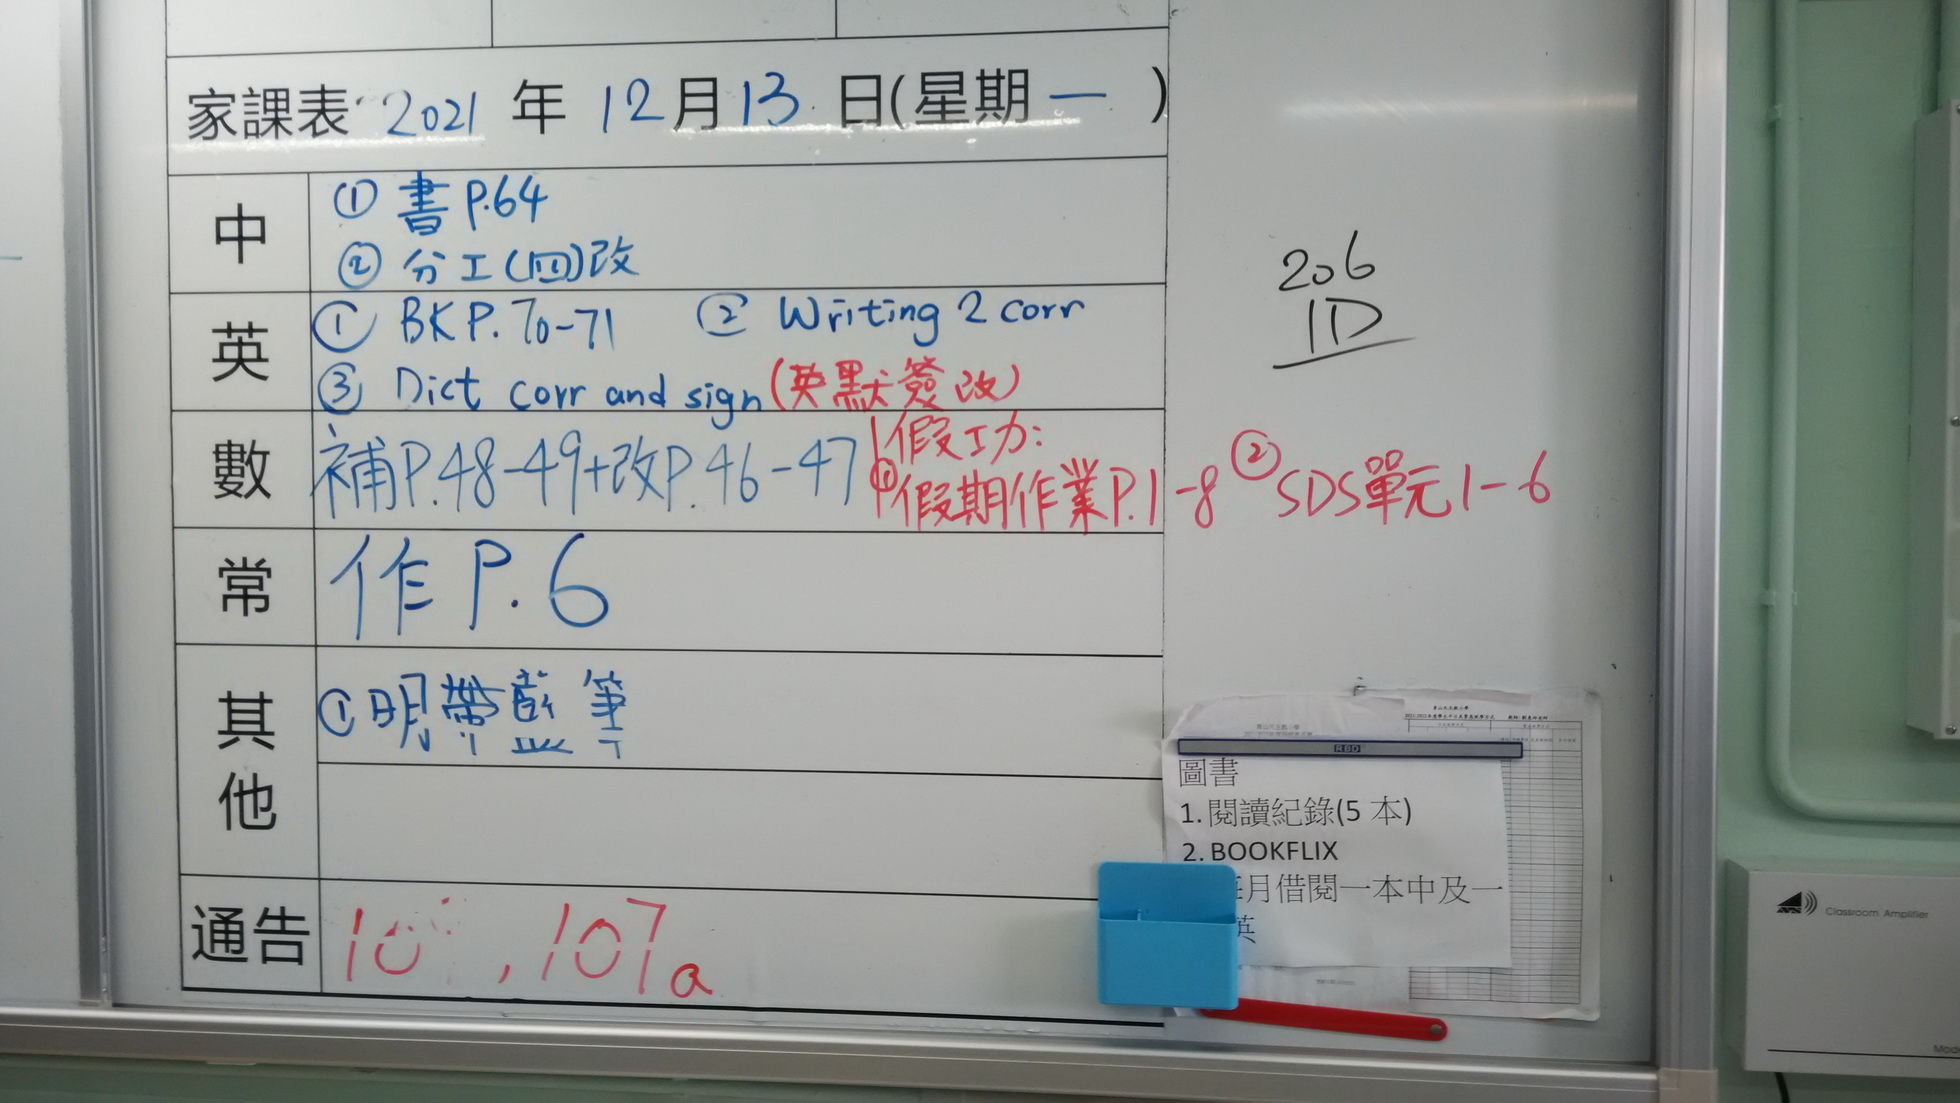 家課表 2021 年 12 月 13 日(星期 一 )
中
① 書 P.64
② 分工(四)改
英
① BK P. 70-71 ② Writing 2 corr
③ Dict corr and sign (英默簽改)
數
補P.48-49+改P.46-47
假工力:
①假期作業P.1-8 ②SDS單元1-6
常
作 P.6
其他
①明帶藍筆
通告
10 , 107a
206
1D
RBD
圖書
1. 閱讀紀錄(5 本)
2. BOOKFLIX
月借閱一本中及一
英
Classroom Amplifier